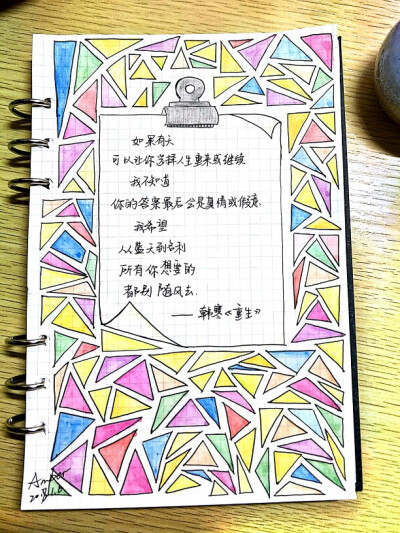 如果有天
可以让你选择人生重来或继续
我不知道
你的答案最后会是真情或假意.
我希望
从蓝天到名利
所有你想要的
都别随风去.
—— 韩寒《重生》